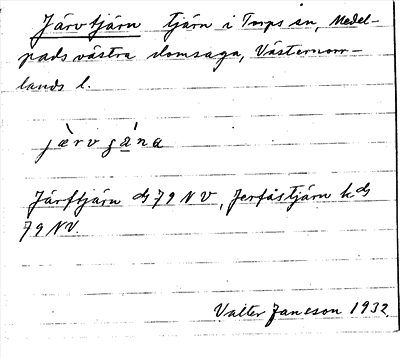 Järvtjärn tjärn i Torps sn, Medel-
pads västra domsaga, Västernorr-
lands l.
järvʒäna
Järftjärn ds 79 NV, Jerfåstjärn kds
79 NV.
Valter Jansson 1932